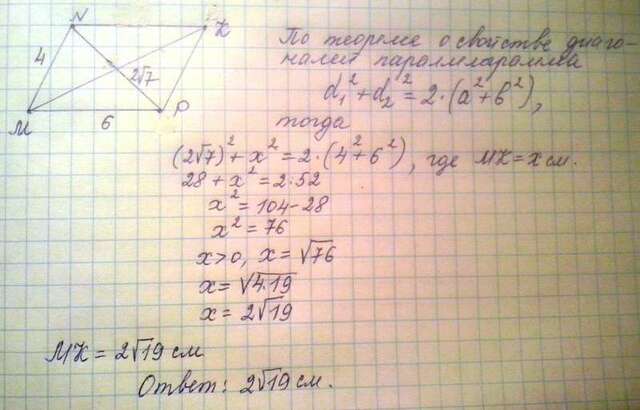 N K
4
2√7
M 6 P
По теореме о свойстве диаго-
налей параллелограмма
d₁² + d₂² = 2·(a² + b²),
тогда
(2√7)² + x² = 2·(4² + 6²), где MK = x см.
28 + x² = 2·52
x² = 104 - 28
x² = 76
x > 0, x = √76
x = √4·19
x = 2√19
MK = 2√19 см
Ответ: 2√19 см.